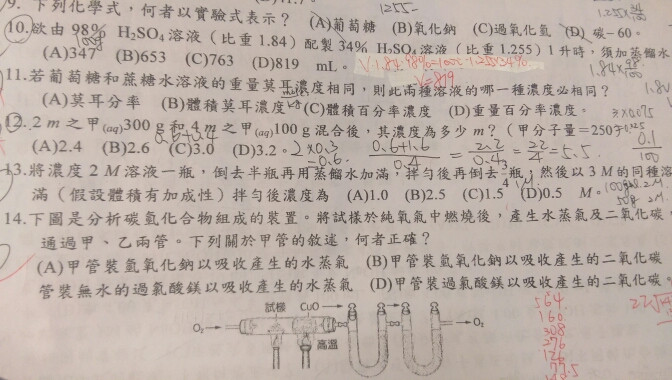 9. 下列化學式，何者以實驗式表示？ (A)葡萄糖 (B)氧化鈉 (C)過氧化氫 (D) 碳－60。
10.欲由 98% H₂SO₄ 溶液（比重 1.84）配製 34% H₂SO₄ 溶液（比重 1.255）1 升時，須加蒸餾水
(A)347 (B)653 (C)763 (D)819 mL。
11.若葡萄糖和蔗糖水溶液的重量莫耳濃度相同，則此兩種溶液的哪一種濃度必相同？
(A)莫耳分率 (B)體積莫耳濃度 (C)體積百分率濃度 (D)重量百分率濃度。
12. 2 m 之甲(aq)300 g 和 4 m 之甲(aq)100 g 混合後，其濃度為多少 m？（甲分子量＝250）
(A)2.4 (B)2.6 (C)3.0 (D)3.2。
13.將濃度 2 M 溶液一瓶，倒去半瓶再用蒸餾水加滿，拌勻後再倒去 瓶，然後以 3 M 的同種溶
滿（假設體積有加成性）拌勻後濃度為 (A)1.0 (B)2.5 (C)1.5 (D)0.5 M。
14.下圖是分析碳氫化合物組成的裝置。將試樣於純氧氣中燃燒後，產生水蒸氣及二氧化碳，
通過甲、乙兩管。下列關於甲管的敘述，何者正確？
(A)甲管裝氫氧化鈉以吸收產生的水蒸氣 (B)甲管裝氫氧化鈉以吸收產生的二氧化碳
管裝無水的過氯酸鎂以吸收產生的水蒸氣 (D)甲管裝過氯酸鎂以吸收產生的二氧化碳。
試樣 CuO
O₂ O₂
高溫
564
160
308
276
126
77.5